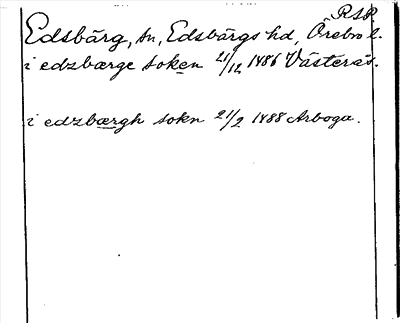 RSP
Edsbärg, sn, Edsbärgs hd, Örebro l.
i edzbærge soken 21/12 1486 Västerås.
i edzbærgh sokn 21/2 1488 Arboga.